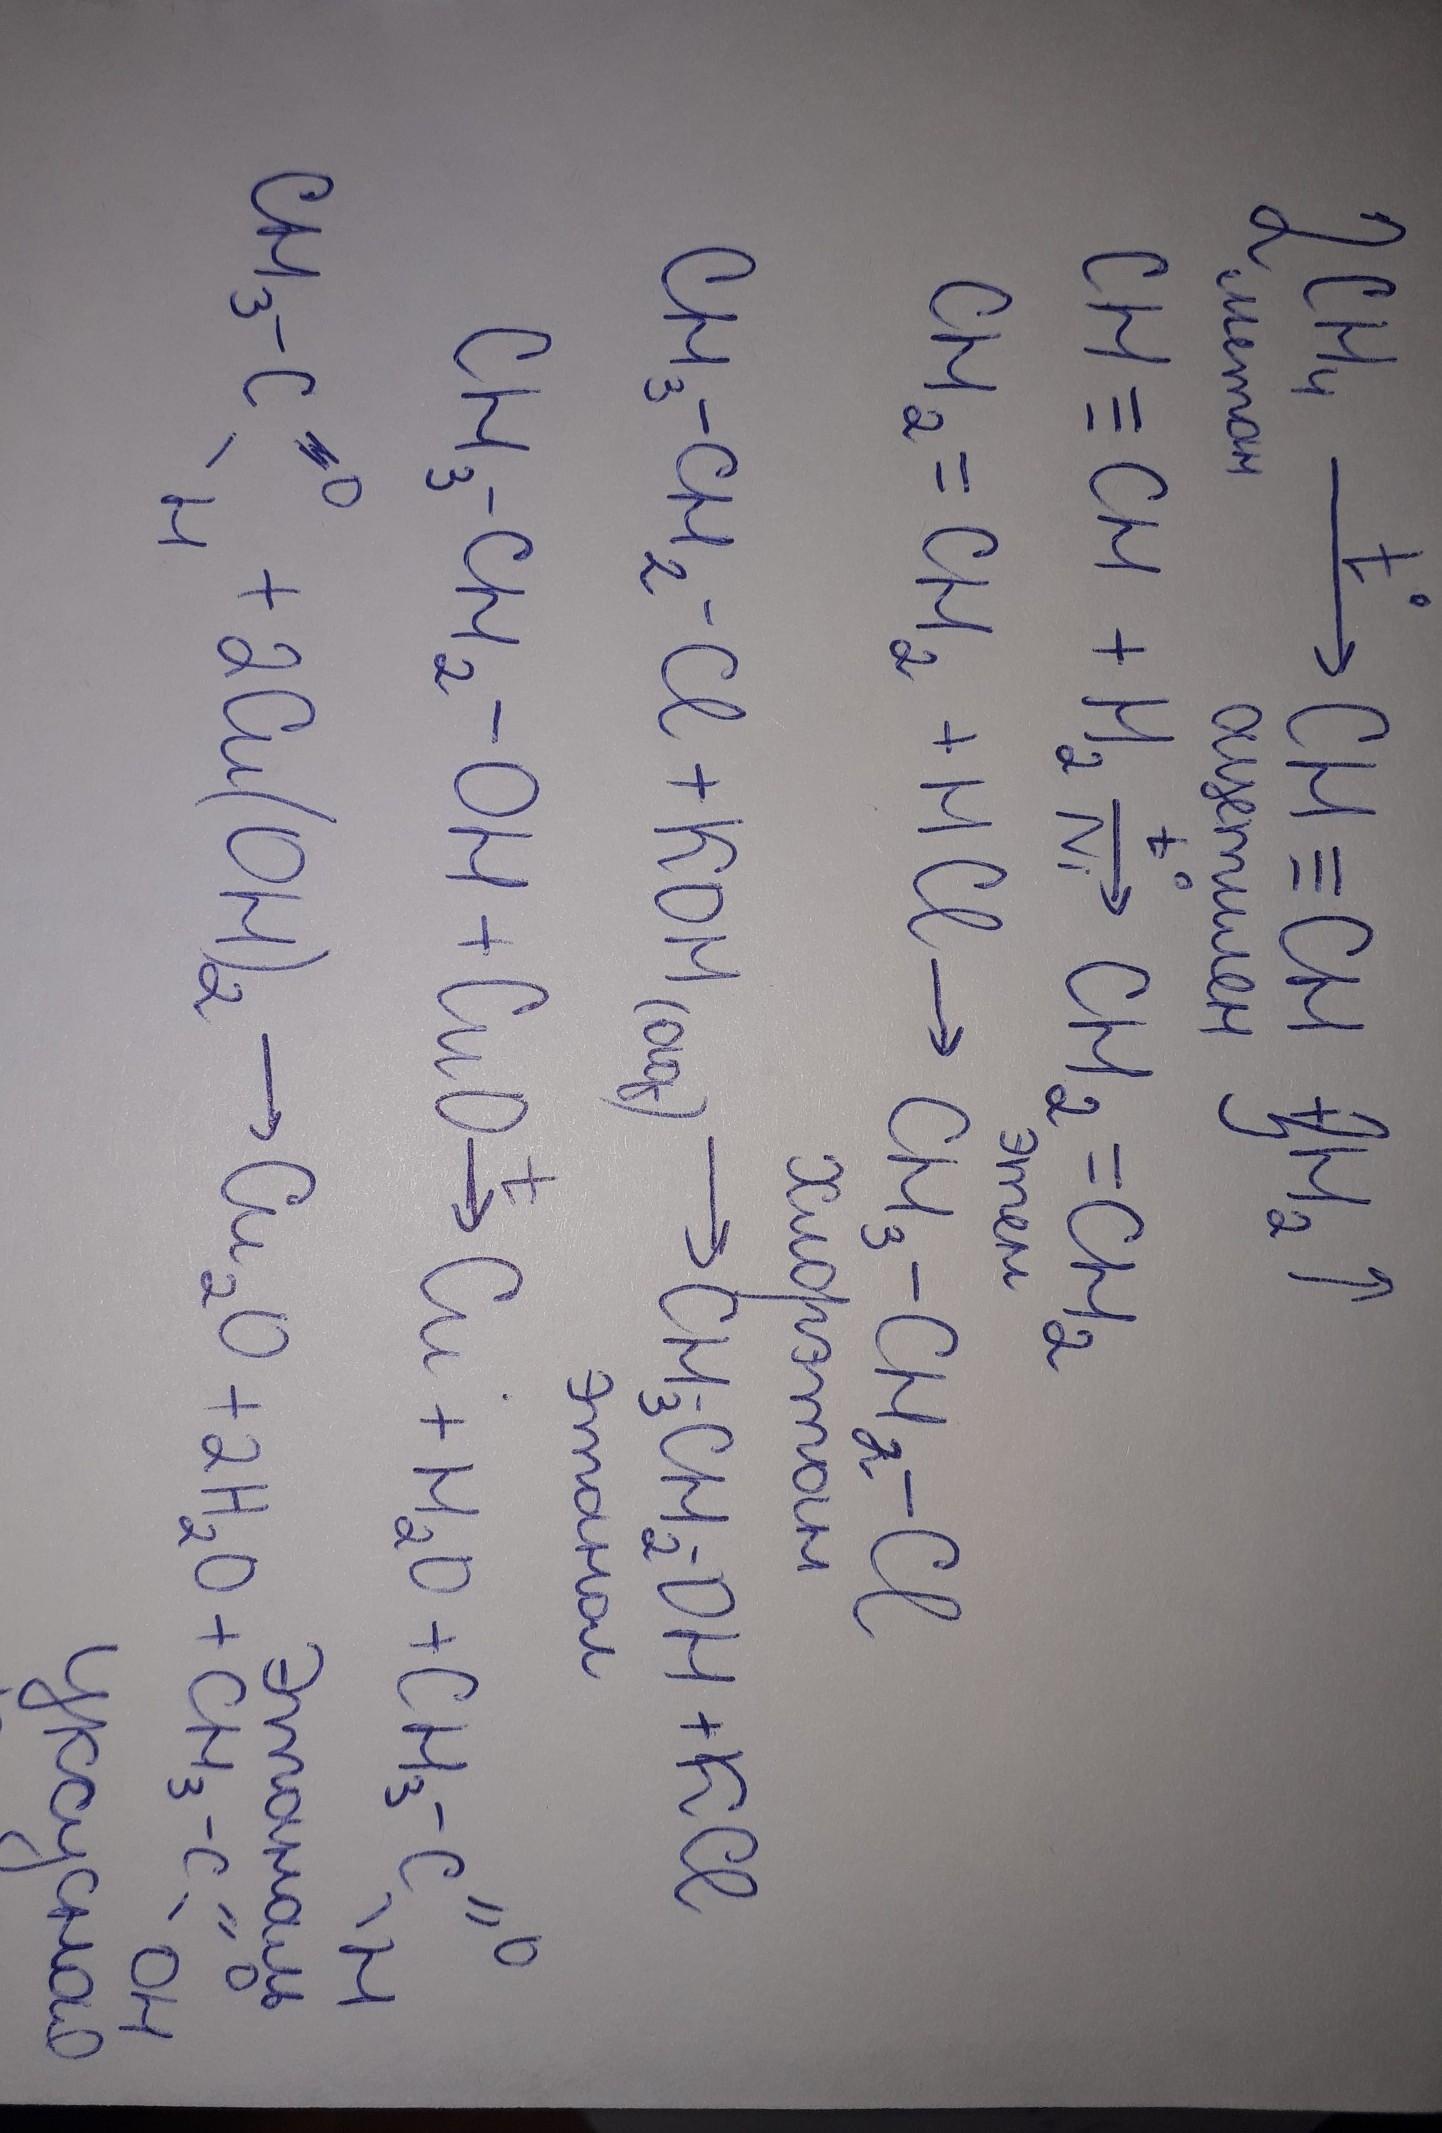 2CH₄ —t°→ CH≡CH + 3H₂↑
2 метан ацетилен 3
CH≡CH + H₂ —t°, Ni→ CH₂=CH₂
этен
CH₂=CH₂ + HCl → CH₃-CH₂-Cl
хлорэтан
CH₃-CH₂-Cl + KOH(aq) → CH₃-CH₂-OH + KCl
этанол
CH₃-CH₂-OH + CuO —t→ Cu + H₂O + CH₃-C(=O)-H
Этаналь
CH₃-C(=O)-H + 2Cu(OH)₂ → Cu₂O + 2H₂O + CH₃-C(=O)-OH
Уксусная